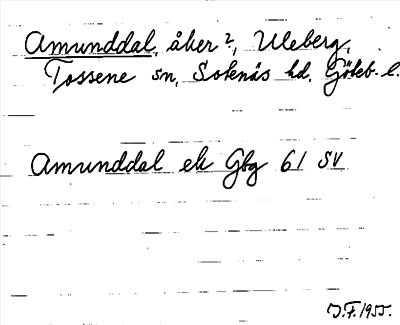 Amunddal, åker?, Uleberg,
Tossene sn, Sotenäs hd, Göteb. l.
Amunddal ek Gbg 61 SV
J.F. 1955.